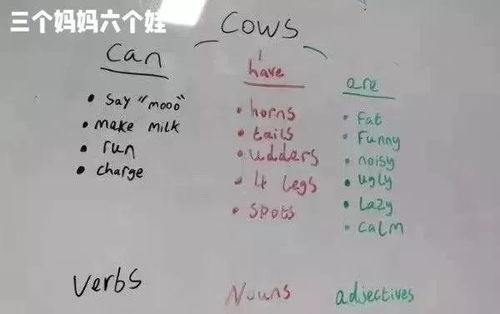 三个妈妈六个娃
COWS
can
• say "mooo"
• make milk
• run
• charge
verbs
have
• horns
• tails
• udders
• 4 legs
• spots
Nouns
are
• Fat
• Funny
• noisy
• ugly
• Lazy
• calm
adjectives